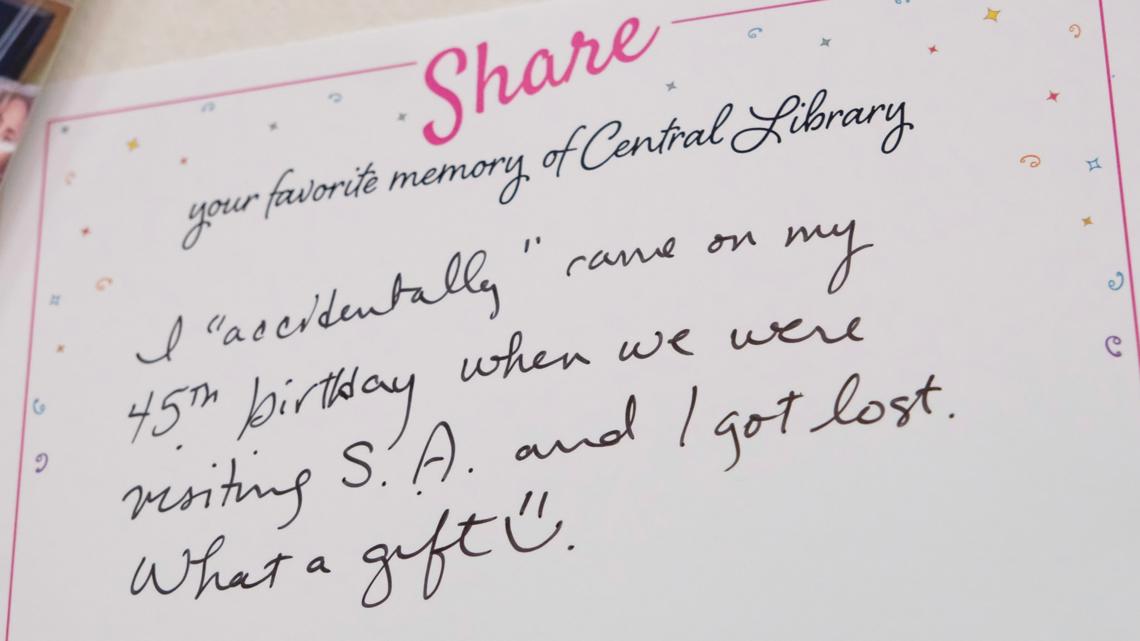 Share
your favorite memory of Central Library
I "accidentally" came on my
45th birthday when we were
visiting S.A. and I got lost.
What a gift ü.